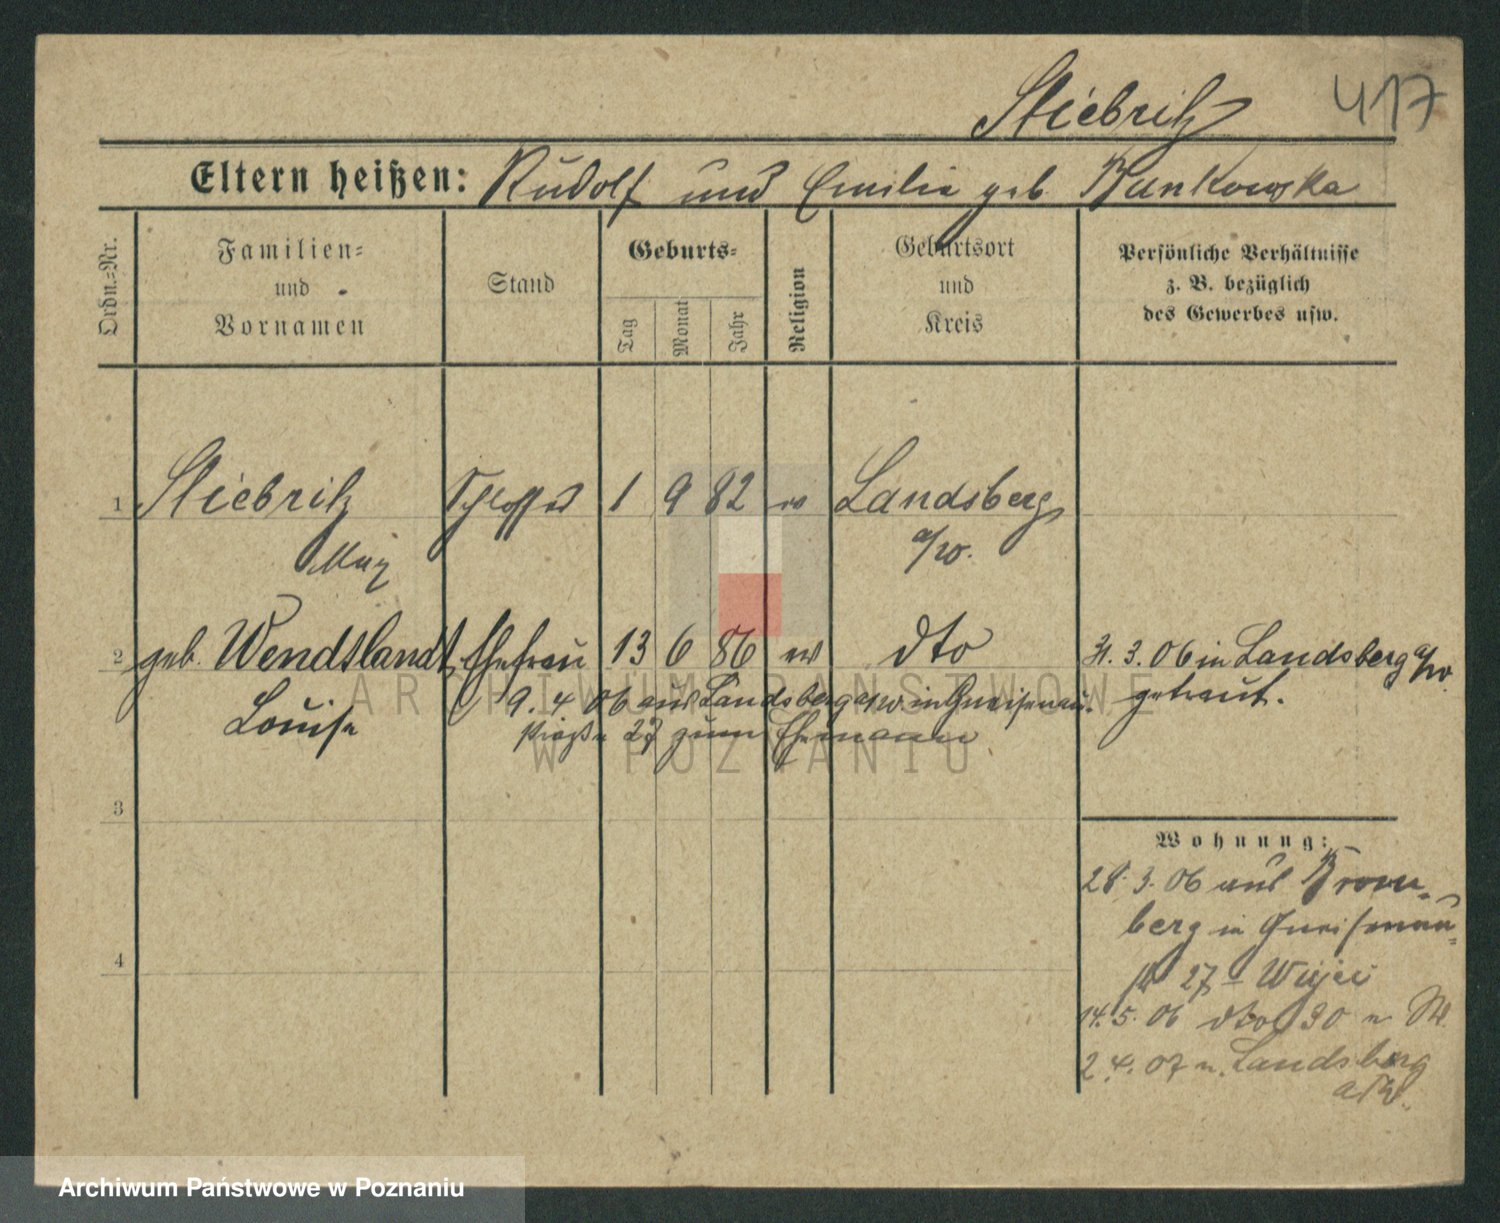 417
Stiebritz
Eltern heißen: Rudolf und Emilie geb. Bunkowska
Ordn.-Nr.
Familien-
und
Vornamen
Stand
Geburts-
Tag
Monat
Jahr
Religion
Geburtsort
und
Kreis
Persönliche Verhältnisse
z. B. bezüglich
des Gewerbes usw.
1 Stiebritz Schlosser 1 9 82 ev Landsberg
Max a/W.
2 geb. Wendtlandt Ehefrau 13 6 86 ev dto 31. 3. 06 in Landsberg a/W.
Louise 9. 4 06 aus Landsberg a/W. in Gneisenau- getraut.
straße 27 zum Ehemann
3
4
Wohnung:
28. 3. 06 aus Brom-
berg in Gneisenau-
str 27
14. 5. 06 dto 30
2. 4. 07 n. Landsberg
a/W.
ARCHIWUM PAŃSTWOWE
W POZNANIU
Archiwum Państwowe w Poznaniu